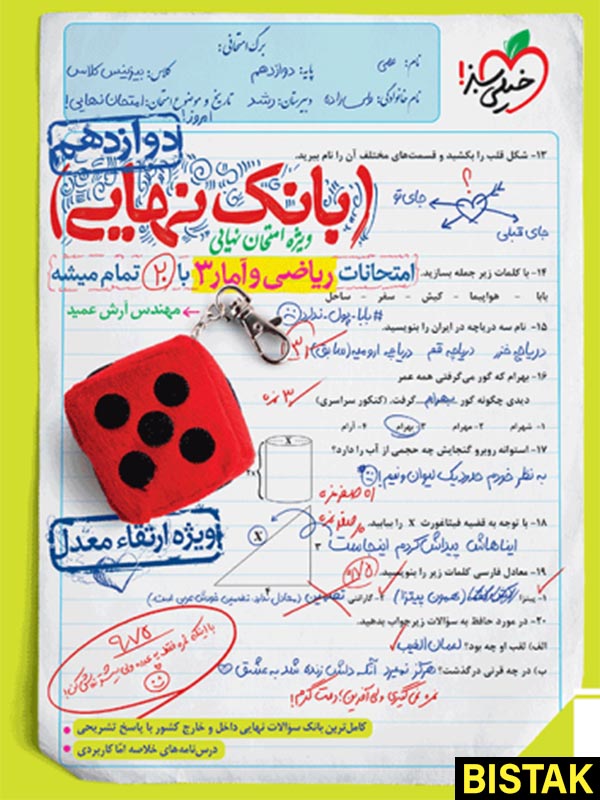 خیلی سبز!
برگ امتحانی:
نام:
پایه: دوازدهم
کلاس: بیزینس کلاس
نام خانوادگی:
دبیرستان: رشد
تاریخ و موضوع امتحان: امتحان نهایی! امروز!
دوازدهم
(بانک نهایی)
ویژه امتحان نهایی
امتحانات ریاضی و آمار ۳ با ۲۰ تمام میشه
مهندس آرش عمید
۱۳- شکل قلب را بکشید و قسمت‌های مختلف آن را نام ببرید.
؟
جای تو
جای قبلی
۱۴- با کلمات زیر جمله بسازید.
بابا - هواپیما - کیش - سفر - ساحل
#بابا_پول_ندارد
۱۵- نام سه دریاچه در ایران را بنویسید.
دریاچه خزر دریاچه قم دریاچه ارومیه (سابق)
۱۶- بهرام که گور می‌گرفتی همه عمر
دیدی چگونه گور بهرام گرفت. (کنکور سراسری)
۳ نمره
۱- شهرام ۲- مهرام ۳- بهرام ۴- آرام
۱۷- استوانه روبرو گنجایش چه حجمی از آب را دارد؟
به نظر خودم حدود یک لیوان و نیم!
X
۲x
۱۸- با توجه به قضیه فیثاغورت X را بیابید.
ایناهاش پیداش کردم اینجاست
X
۳
۴
ویژه ارتقاء معدل
۱۹- معادل فارسی کلمات زیر را بنویسید.
۱- پیتزا (همون پیتزا) ۲- گارانتی تضمین (معادل ندارد تضمین خودش عربی است.)
۲۰- در مورد حافظ به سؤالات زیر جواب بدهید.
الف) لقب او چه بود؟ لسان الغیب
ب) در چه قرنی درگذشت؟ هرگز نمیرد آنکه دلش زنده شد به عشق
نمره نمی‌گیری ولی آفرین! دمت گرم!
۹/۷۵
کامل‌ترین بانک سوالات نهایی داخل و خارج کشور با پاسخ تشریحی
درس‌نامه‌های خلاصه امّا کاربردی
BISTAK